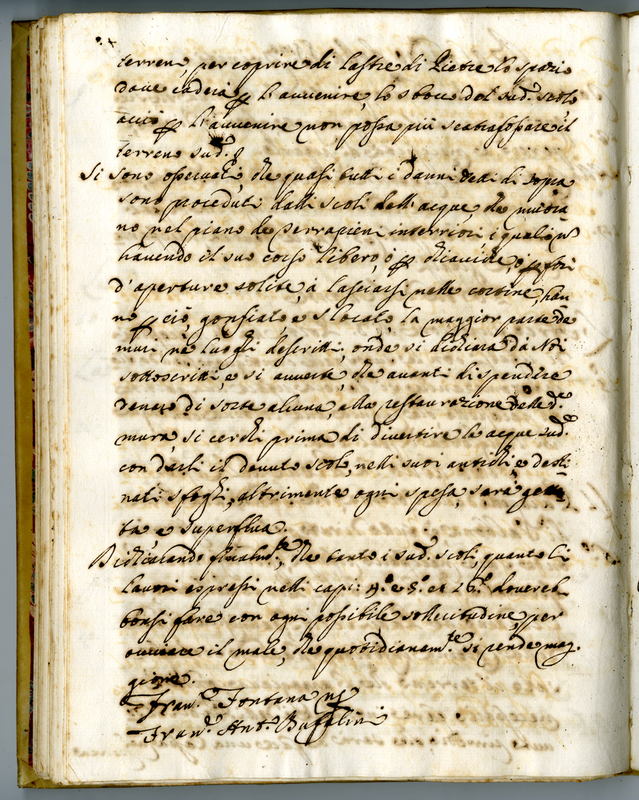 terreno, per coprire di lastre di Pietre lo spazio
dove caderà p l'avvenire, lo sbocco del sud.º scolo
acciò p l'avvenire non possa più scatafossare il
terreno sud.º
Si sono osservati, che quasi tutti i danni detti di sopra
sono proceduti dalli scoli dell'acque, che
no nel piano de Terrapieni interiori, i quali n
havendo il suo corso libero, ò p, ò p fori
d'aperture solite, à lasciarsi nelle cortine, han
no p ciò, gonfiato, e slocato la maggior parte de
muri ne luoghi descritti, onde si dichiara da Noi
sottoscritti, e si avverte, che avanti di spendere
denaro di sorte alcuna, alla restaurazione delle d.e
mura, si cerchi prima di divertire le acque sud.e
con darli il dovuto scolo, nelli suoi antichi, e desti
nati sfoghi, altrimente ogni spesa, sarà get
ta e superflua.
Dichiarando finalm.te, che tanto i sud.i scoli, quanto li
lavori espressi nelli capi: 4.º e 5.º et 16.º dovereb
bonsi fare con ogni possibile sollecitudine, per
ovviare il male, che quotidianam.te si rende mag
giore.
Fran.co Fontana
Fran.co Ant.º Buffalini